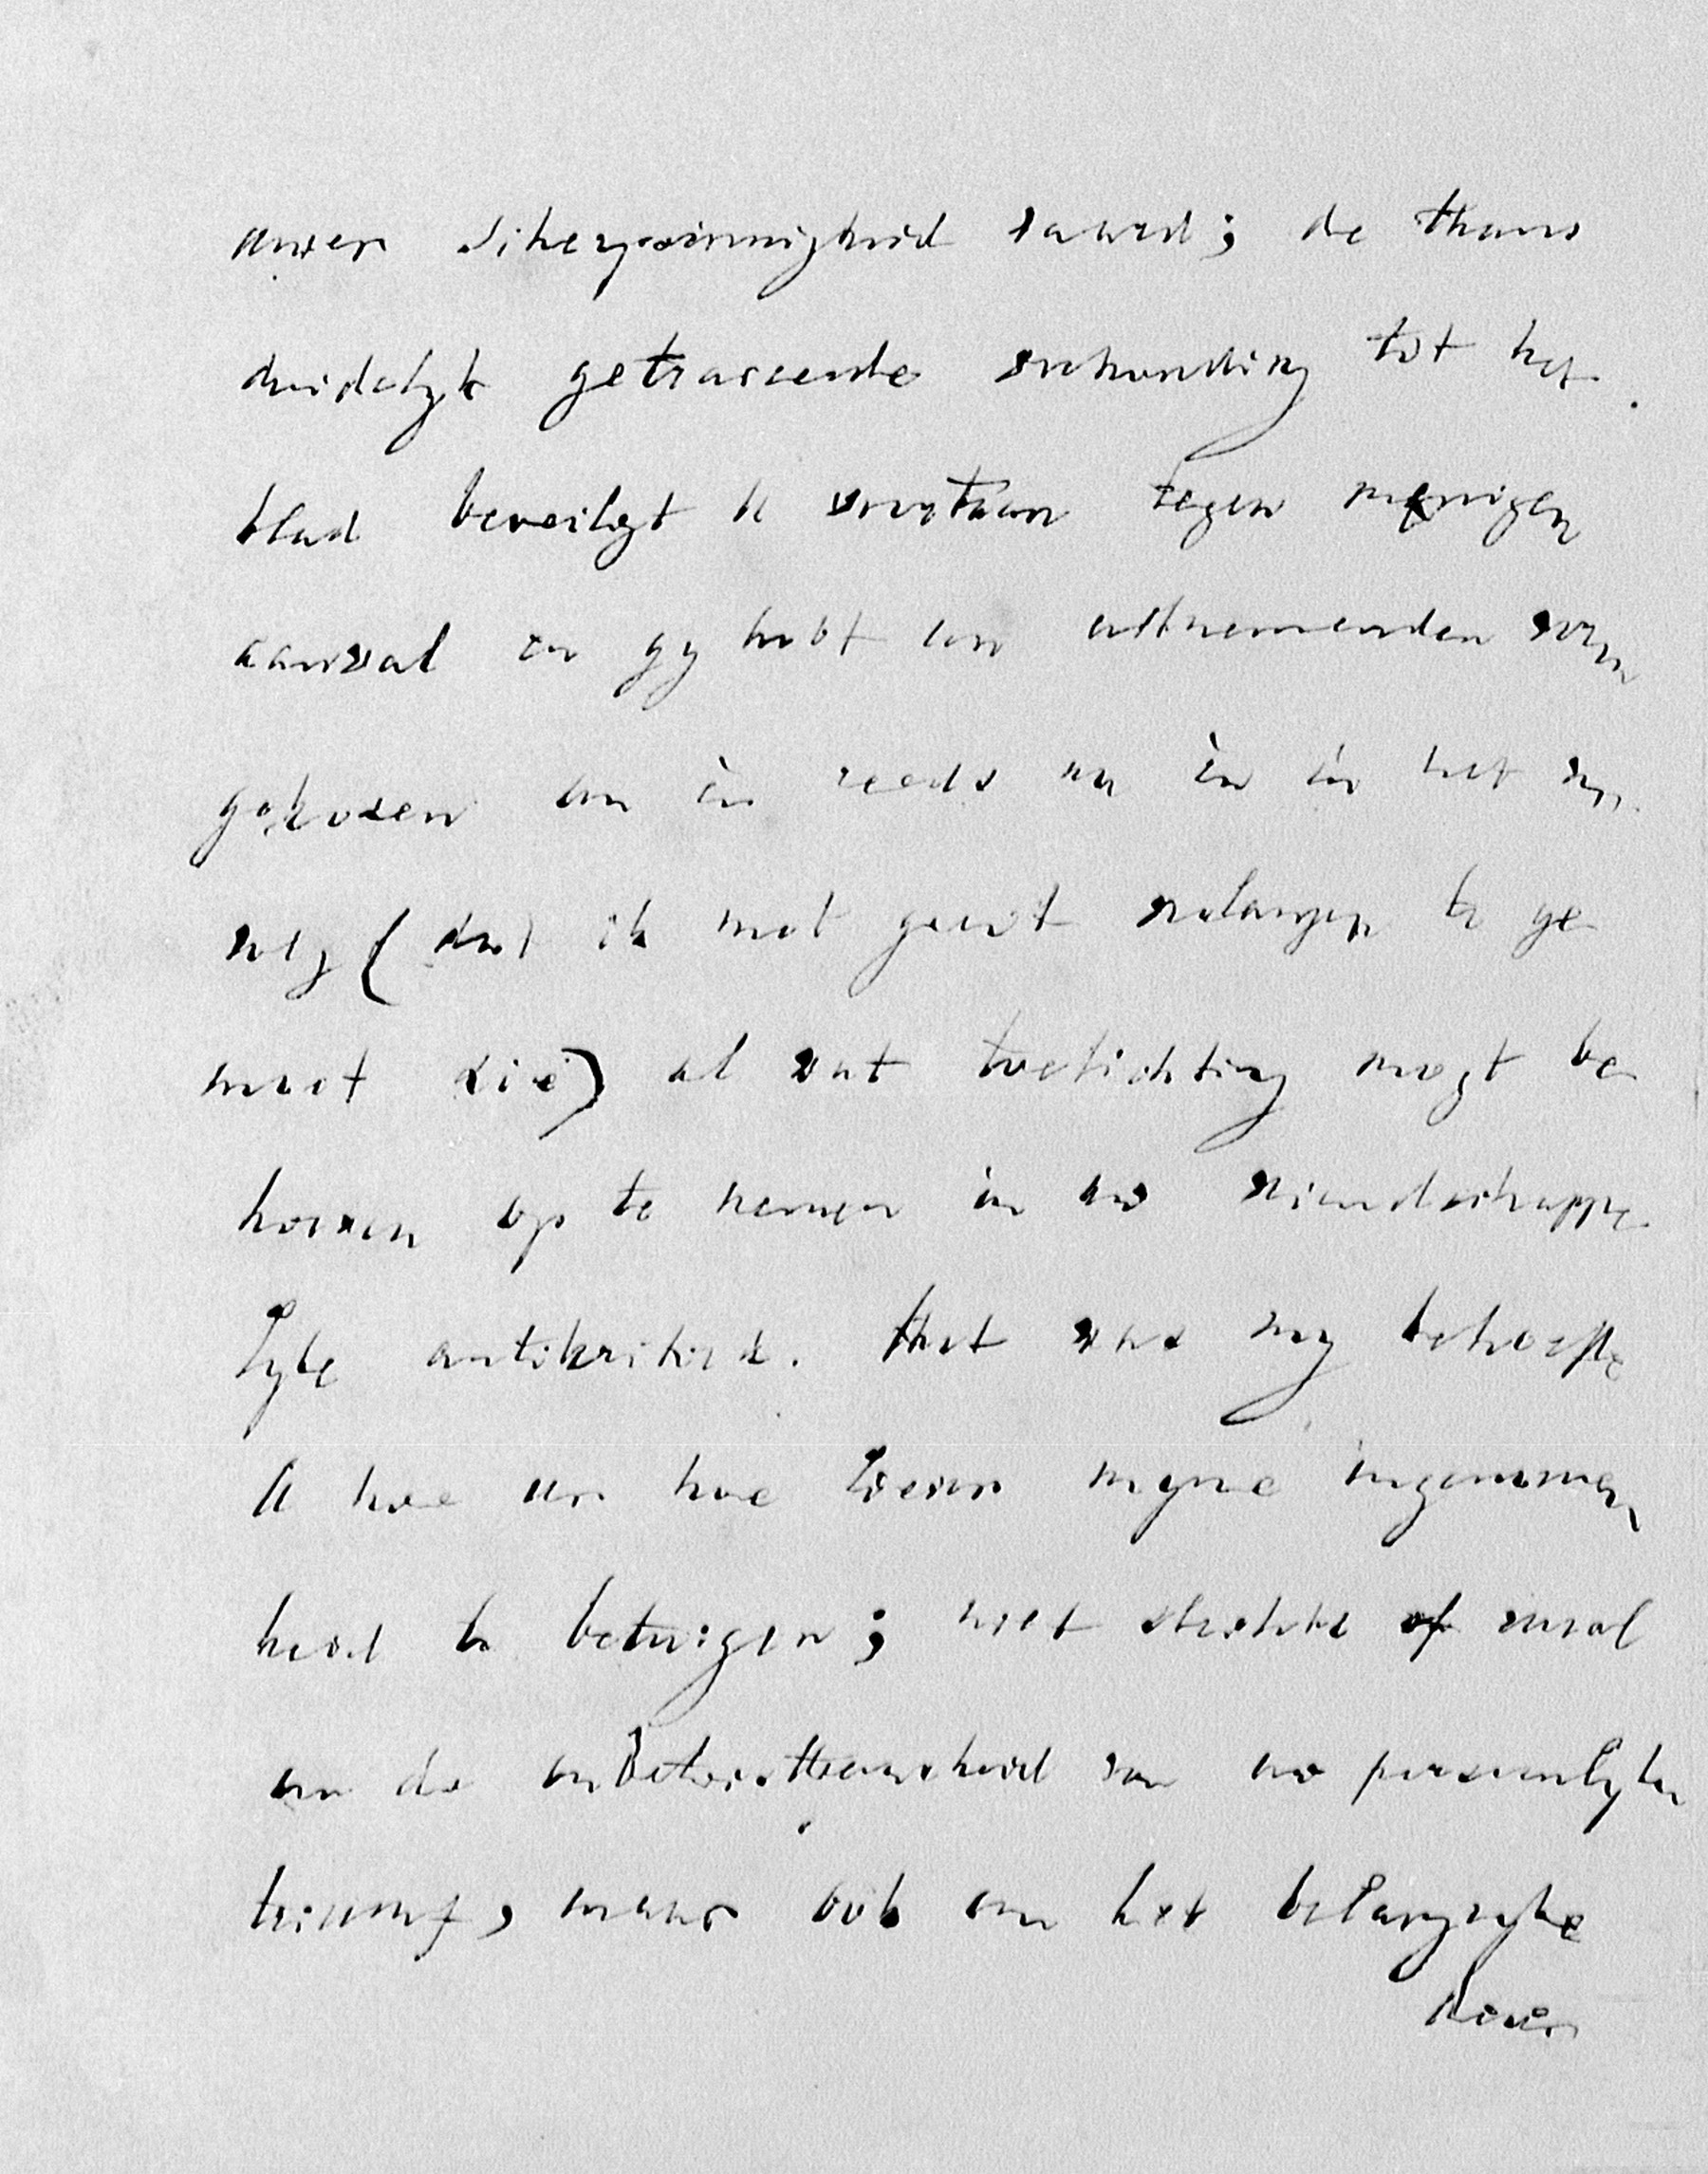 uwer scherpzinnigheid sa werd; de thans
duidelyk getraceerde verhouding tot het
blad beveiligt U voortaan tegen menigen
aanval en gy hebt een uitnemenden vorm
gekozen om èn reeds nu èn in het ver
volg (dat ik met groot verlangen te ge
moet zie) al wat toelichting mogt be
hoeven op te nemen in uw vriendschappe
lyke antikritiek. Het was my behoefte
U hoe eer hoe liever myne ingenomen
heid te betuigen; niet slechts of vooral
om de onbetwistbaarheid van uw persoonlyken
triumf, maar ook om het belangryke